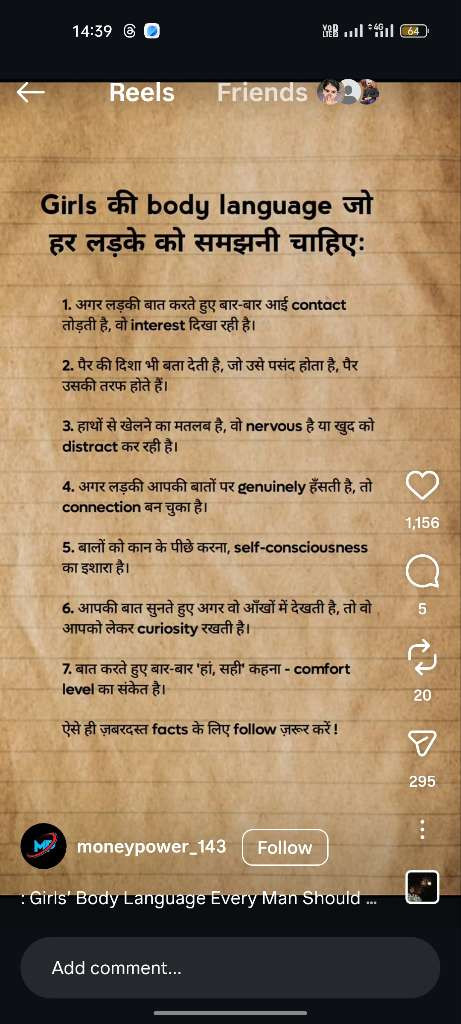 14:39
VoD LTED 4G 64
Reels Friends
Girls की body language जो
हर लड़के को समझनी चाहिए:
1. अगर लड़की बात करते हुए बार-बार आई contact
तोड़ती है, वो interest दिखा रही है।
2. पैर की दिशा भी बता देती है, जो उसे पसंद होता है, पैर
उसकी तरफ होते हैं।
3. हाथों से खेलने का मतलब है, वो nervous है या खुद को
distract कर रही है।
4. अगर लड़की आपकी बातों पर genuinely हँसती है, तो
connection बन चुका है।
5. बालों को कान के पीछे करना, self-consciousness
का इशारा है।
6. आपकी बात सुनते हुए अगर वो आँखों में देखती है, तो वो
आपको लेकर curiosity रखती है।
7. बात करते हुए बार-बार 'हां, सही' कहना - comfort
level का संकेत है।
ऐसे ही ज़बरदस्त facts के लिए follow ज़रूर करें !
1,156
5
20
295
moneypower_143 Follow
: Girls' Body Language Every Man Should ...
Add comment...